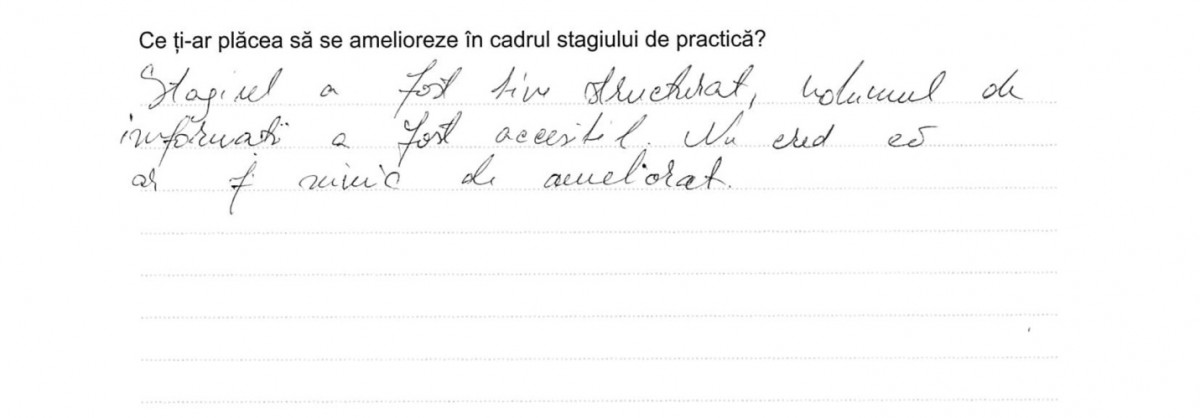 Ce ți-ar plăcea să se amelioreze în cadrul stagiului de practică?
Stagiul a fost bine structurat, volumul de
informații a fost accesibil. Nu cred că
ar fi nimic de ameliorat.